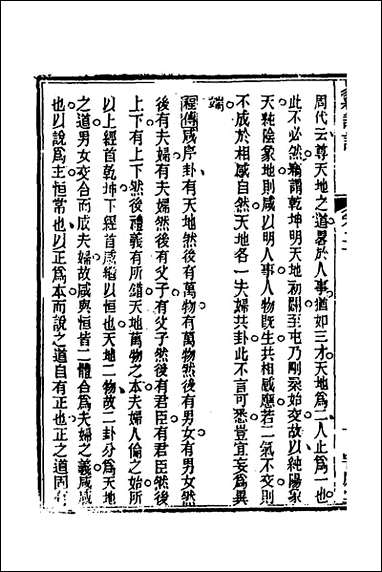 周代云尊天地之道畧於人事猶如三才天地爲二人止爲一也
此不必然竊謂乾坤明天地初闢至屯乃剛柔始交故以純陽象
天純陰象地則咸以明人事人物旣生共相感應若二氣不交則
不成於相感自然天地各一夫婦共卦此不言可悉豈宜妄爲異
端
程傳咸序卦有天地然後有萬物有萬物然後有男女有男女然
後有夫婦有夫婦然後有父子有父子然後有君臣有君臣然後
上下有上下然後禮義有所錯天地萬物之本夫婦人倫之始所
以上經首乾坤下經首咸繼以恒也天地二物故二卦分爲天地
之道男女交合而成夫婦故咸與恒皆二體合爲夫婦之義咸感
也以說爲主恒常也以正爲本而說之道自有正也正之道固有